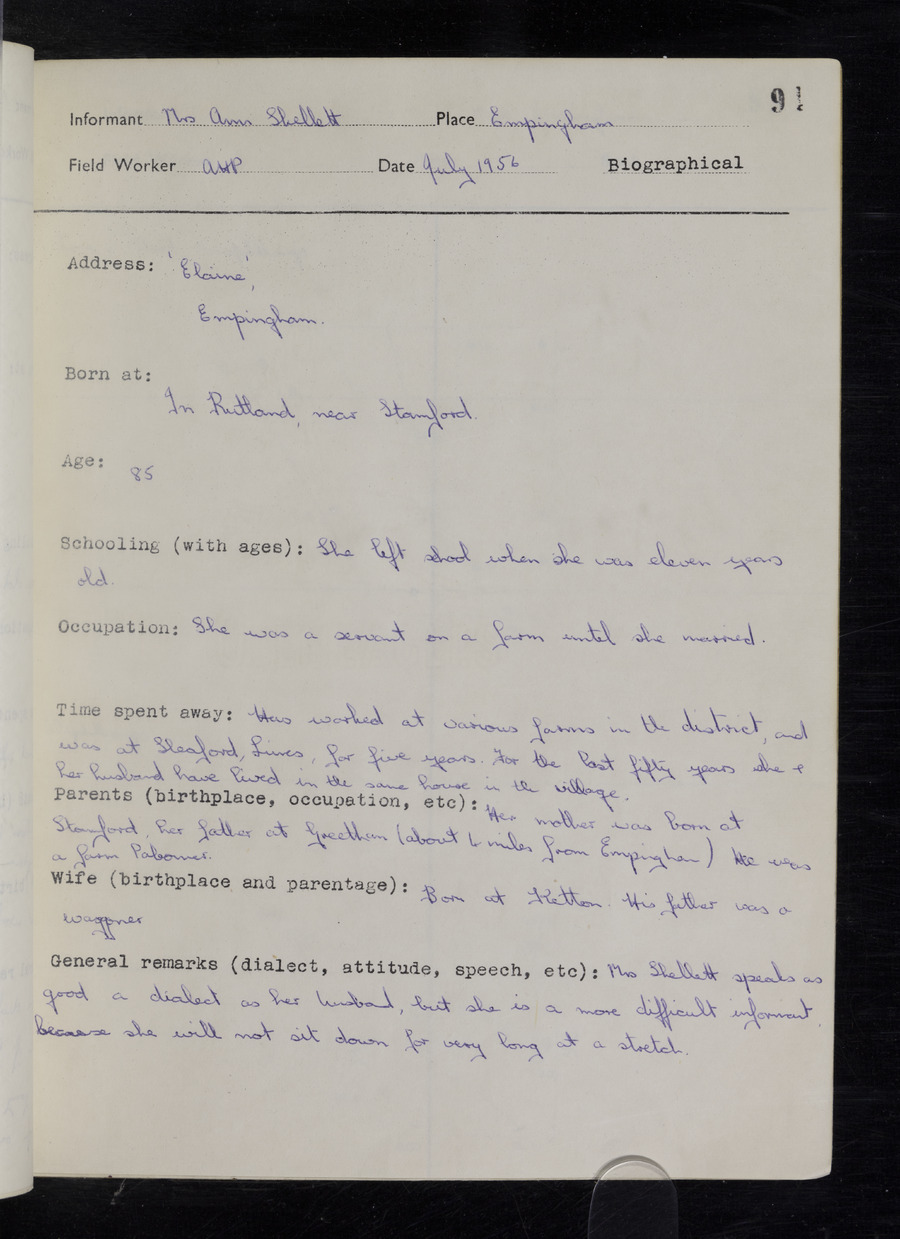 9
Informant Mrs Ann Shellett Place Empingham
Field Worker AHP Date July 1956 Biographical
Address: 'Elaine',
Empingham.
Born at:
In Rutland, near Stamford.
Age:
85
Schooling (with ages): She left school when she was eleven years
old.
Occupation: She was a servant on a farm until she married.
Time spent away: Has worked at various farms in the district, and
was at Sleaford, Lincs, for five years. For the last fifty years she &
her husband have lived in the same house in the village.
Parents (birthplace, occupation, etc): Her mother was born at
Stamford, her father at Greetham (about 4 miles from Empingham) He was
a farm labourer.
Wife (birthplace and parentage): Born at Ketton. His father was a
waggoner
General remarks (dialect, attitude, speech, etc): Mrs Shellett speaks as
good a dialect as her husband, but she is a more difficult informant,
because she will not sit down for very long at a stretch.